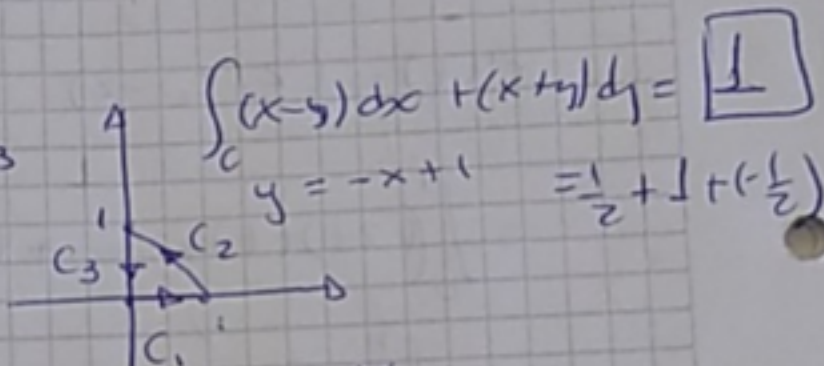 ∫_C (x-y) dx + (x+y) dy = 1
y = -x + 1 = 1/2 + 1 + (-1/2)
1
C₂
C₃
1
C₁